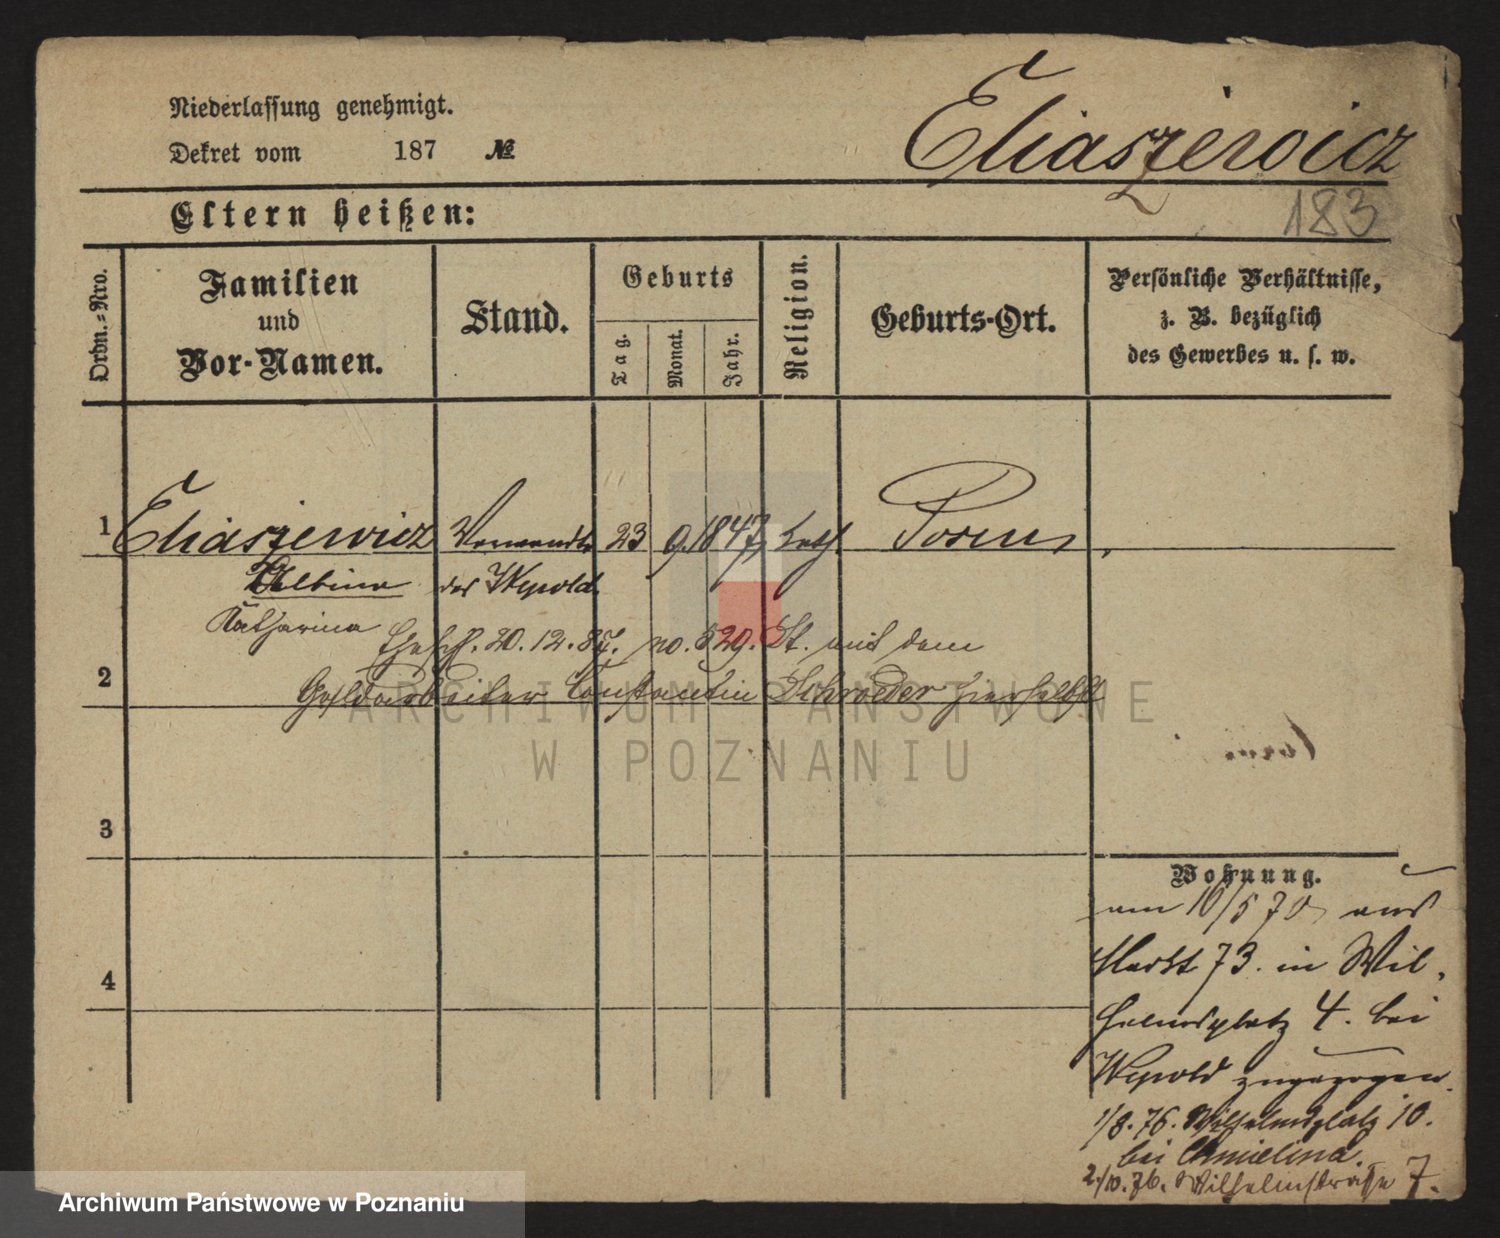 Niederlassung genehmigt.
Dekret vom 187 №
Eliaszewicz
183
Eltern heißen:
Ordn.-Nro.
Familien
und
Vor-Namen.
Stand.
Geburts
Tag.
Monat.
Jahr.
Religion.
Geburts-Ort.
Persönliche Verhältnisse,
z. B. bezüglich
des Gewerbes u. s. w.
1 Eliaszewicz Verwandte 23 9. 1847, kath Posen
Albina des Wepold
Katharina
Ehesch. 20. 12. 87. no. 529. St. mit dem
2 Goldarbeiter Constantin Schroeder hierselbst
ARCHIWUM PAŃSTWOWE
W POZNANIU
3
4
Wohnung.
am 10/5 70 aus
Markt 73. in Wil-
helmsplatz 4. bei
Wepold zugezogen.
1/8. 76. Wilhelmsplatz 10.
bei Chmielina.
2./10. 76. Wilhelmstraße 7.
Archiwum Państwowe w Poznaniu